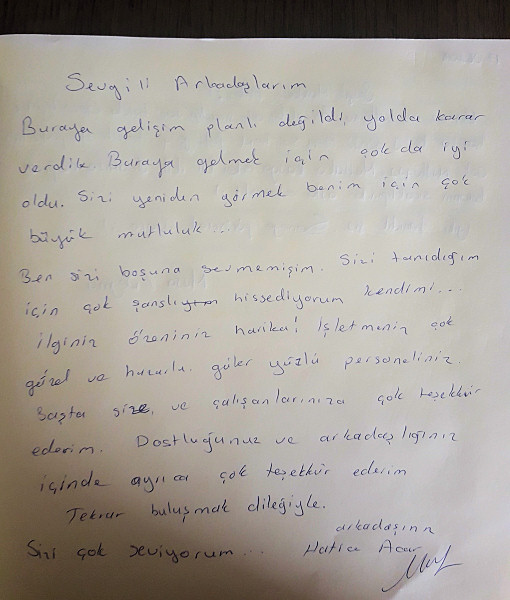 Sevgili Arkadaşlarım
Buraya gelişim planlı değildi, yolda karar
verdik. Buraya gelmek için çok da iyi
oldu. Sizi yeniden görmek benim için çok
büyük mutluluk...
Ben sizi boşuna sevmemişim. Sizi tanıdığım
için çok şanslı hissediyorum kendimi...
ilginiz özeniniz harika! İşletmeniz çok
güzel ve huzurlu. güler yüzlü personeliniz.
Başta size, ve çalışanlarınıza çok teşekkür
ederim. Dostluğunuz ve arkadaşlığınız
içinde ayrıca çok teşekkür ederim
Tekrar buluşmak dileğiyle.
arkadaşınız
Sizi çok seviyorum... Hatice Acar